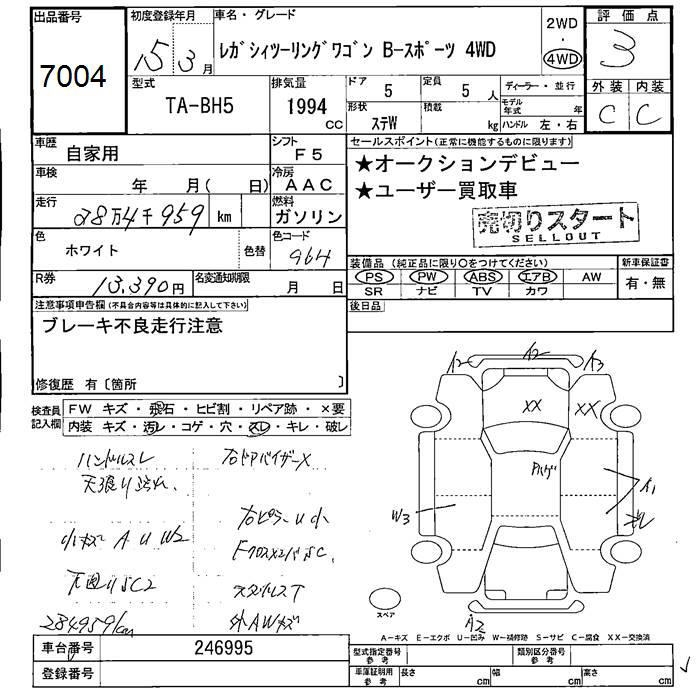 出品番号
7004
初度登録年月
15年3月
車名・グレード
レガシィツーリングワゴン B-スポーツ 4WD
2WD
・
4WD
評価点
3
型式
TA-BH5
排気量
1994
cc
ドア
5
定員
5
人
形状
ステW
積載
kg
ディーラー・並行
モデル年式
年
ハンドル 左・右
外装
内装
C
C
車歴
自家用
シフト
F5
車検
年 月( 日)
冷房
AAC
走行
28万4千959
km
燃料
ガソリン
色
ホワイト
色替
色コード
964
R券
13,390円
名変通知期限
月 日
セールスポイント(正常に機能するものに限ります)
★オークションデビュー
★ユーザー買取車
売切りスタート
SELLOUT
装備品(純正品に限り〇をつけてください)
PS PW ABS エアB AW
SR ナビ TV カワ
新車保証書
有・無
後日品
注意事項申告欄(不具合内容等は具体的に記入して下さい)
ブレーキ不良走行注意
修復歴 有〔箇所 〕
検査員記入欄
FW キズ・飛石・ヒビ割・リペア跡・×要
内装 キズ・汚レ・コゲ・穴・スレ・キレ・破レ
ハンドルスレ
右ドアバイザーX
天張り汚れ
右ピラーU小
小キズ A U W2
Fクロスメンバ S C
スタッドレスT
284959km
外AWキズ
A2
XX
XX
ハゲ
W3
A1
A2
スペア
A-キズ E-エクボ U-凹み W-補修跡 S-サビ C-腐食 XX-交換済
車台番号
246995
登録番号
型式指定番号
参考
類別区分番号
参考
車庫証明用
参考
長さ
cm
幅
cm
高さ
cm